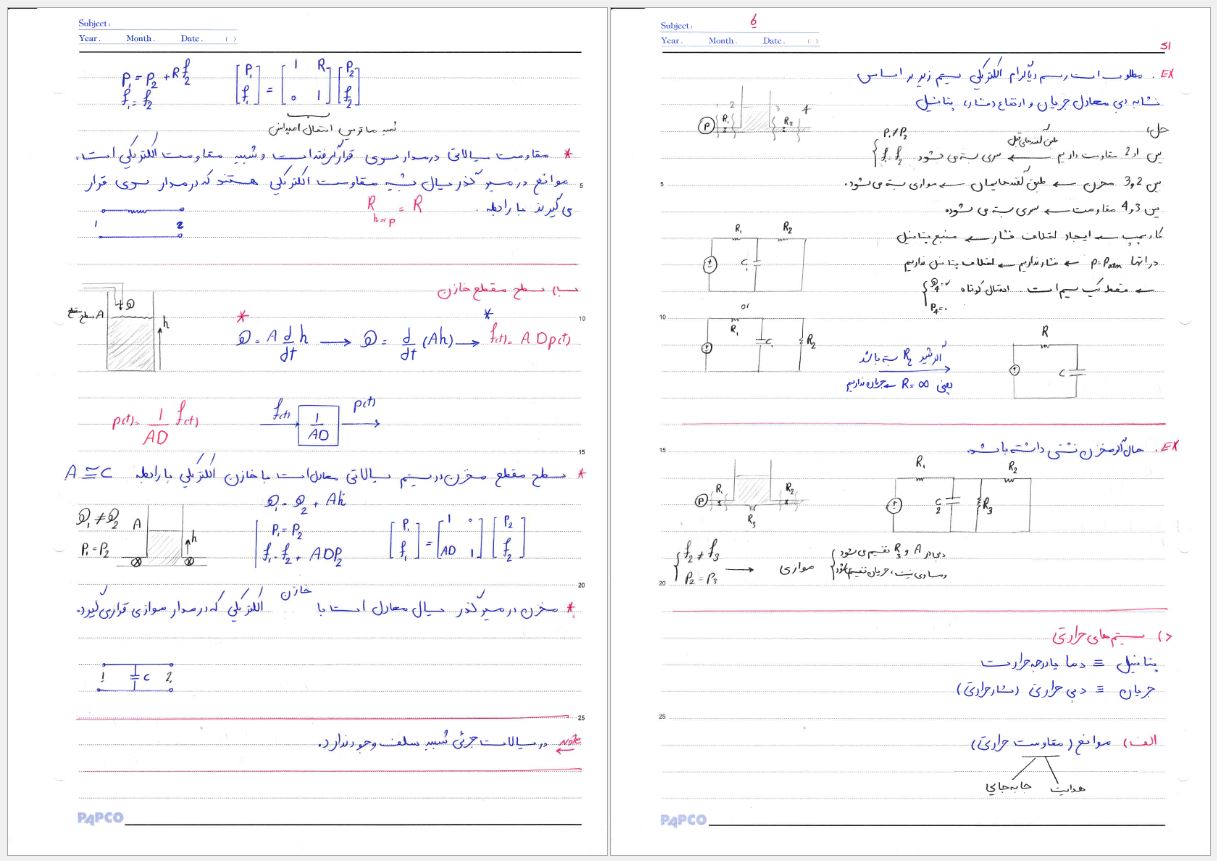 Subject:
Year. Month. Date. ( )
P₁ = P₂ + R f₂
f₁ = f₂
[P₁ f₁] = [1 R 0 1] [P₂ f₂]
* مقاومت سیالاتی در مدار سری قرار گرفته است و شبیه مقاومت الکتریکی است.
موانع در مسیر گذر سیال شبیه مقاومت الکتریکی هستند که در مدار سری قرار
می گیرند با رابطه R = R
1 2
5
سطح مقطع خازن
سطح مقطع A
Q
h
10
* Q = A d/dt h → Q = d/dt (Ah) → * f(t) = A D p(t)
p(t) = 1/AD f(t)
f(t) 1/AD p(t)
15
* سطح مقطع مخزن در سیستم سیالاتی معادل است با خازن الکتریکی با رابطه A ≅ C
Q₁ = Q₂ + Aḣ
Q₁ ≠ Q₂
P₁ = P₂
A
h
P₁ = P₂
f₁ = f₂ + ADP₂
[P₁ f₁] = [1 0 AD 1] [P₂ f₂]
20
* مخزن در مسیر گذر سیال معادل است با خازن الکتریکی که در مدار موازی قرار می گیرد.
1 C 2
25
Note در سیالات جزئی شبیه سلف وجود ندارد.
PAPCO
Subject: 6
Year. Month. Date. ( )
51
EX. مطلوب است رسم دیاگرام الکتریکی سیستم زیر بر اساس
تشابه دبی معادل جریان و ارتفاع (فشار)، پتانسیل
P R₁ 2 3 R₂ 4
حل:
P₁ ≠ P₂
f₁ = f₂
بین 1و2 مقاومت داریم ← سری بسته می شود
5
بین 2و3 مخزن ← موازی بسته می شود.
بین 3و4 مقاومت ← سری بسته می شود
کار پمپ ← ایجاد اختلاف فشار ← منبع پتانسیل
در انتها P = Patm ← فشار نداریم ← اختلاف پتانسیل نداریم
← فقط یک سیم است اتصال کوتاه
R₁ R₂ C
or
10
R₁ C R₂
اگر شیر R₂ بسته باشد
یعنی R = ∞ ← جریان نداریم
R C
EX. حال اگر مخزن نشتی داشته باشد.
15
P R₁ R₂ R₃
R₁ C₂ R₃ R₂
f₂ ≠ f₃
P₂ = P₃
→ موازی
دبی در A و R₃ تقسیم می شود
20
د) سیستم های حرارتی
پتانسیل ≡ دما یا درجه حرارت
جریان ≡ دبی حرارتی (شار حرارتی)
25
الف) موانع (مقاومت حرارتی)
هدایت جابه جایی
PAPCO